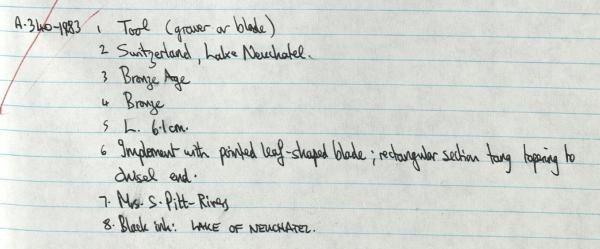 A.340-1983 1 Tool (graver or blade)
2 Switzerland, Lake Neuchatel.
3 Bronze Age
4 Bronze
5 L. 6.1cm.
6 Implement with pointed leaf-shaped blade; rectangular section tang tapering to
chisel end.
7. Mrs. S. Pitt-Rivers
8. Black ink: LAKE OF NEUCHATEL.